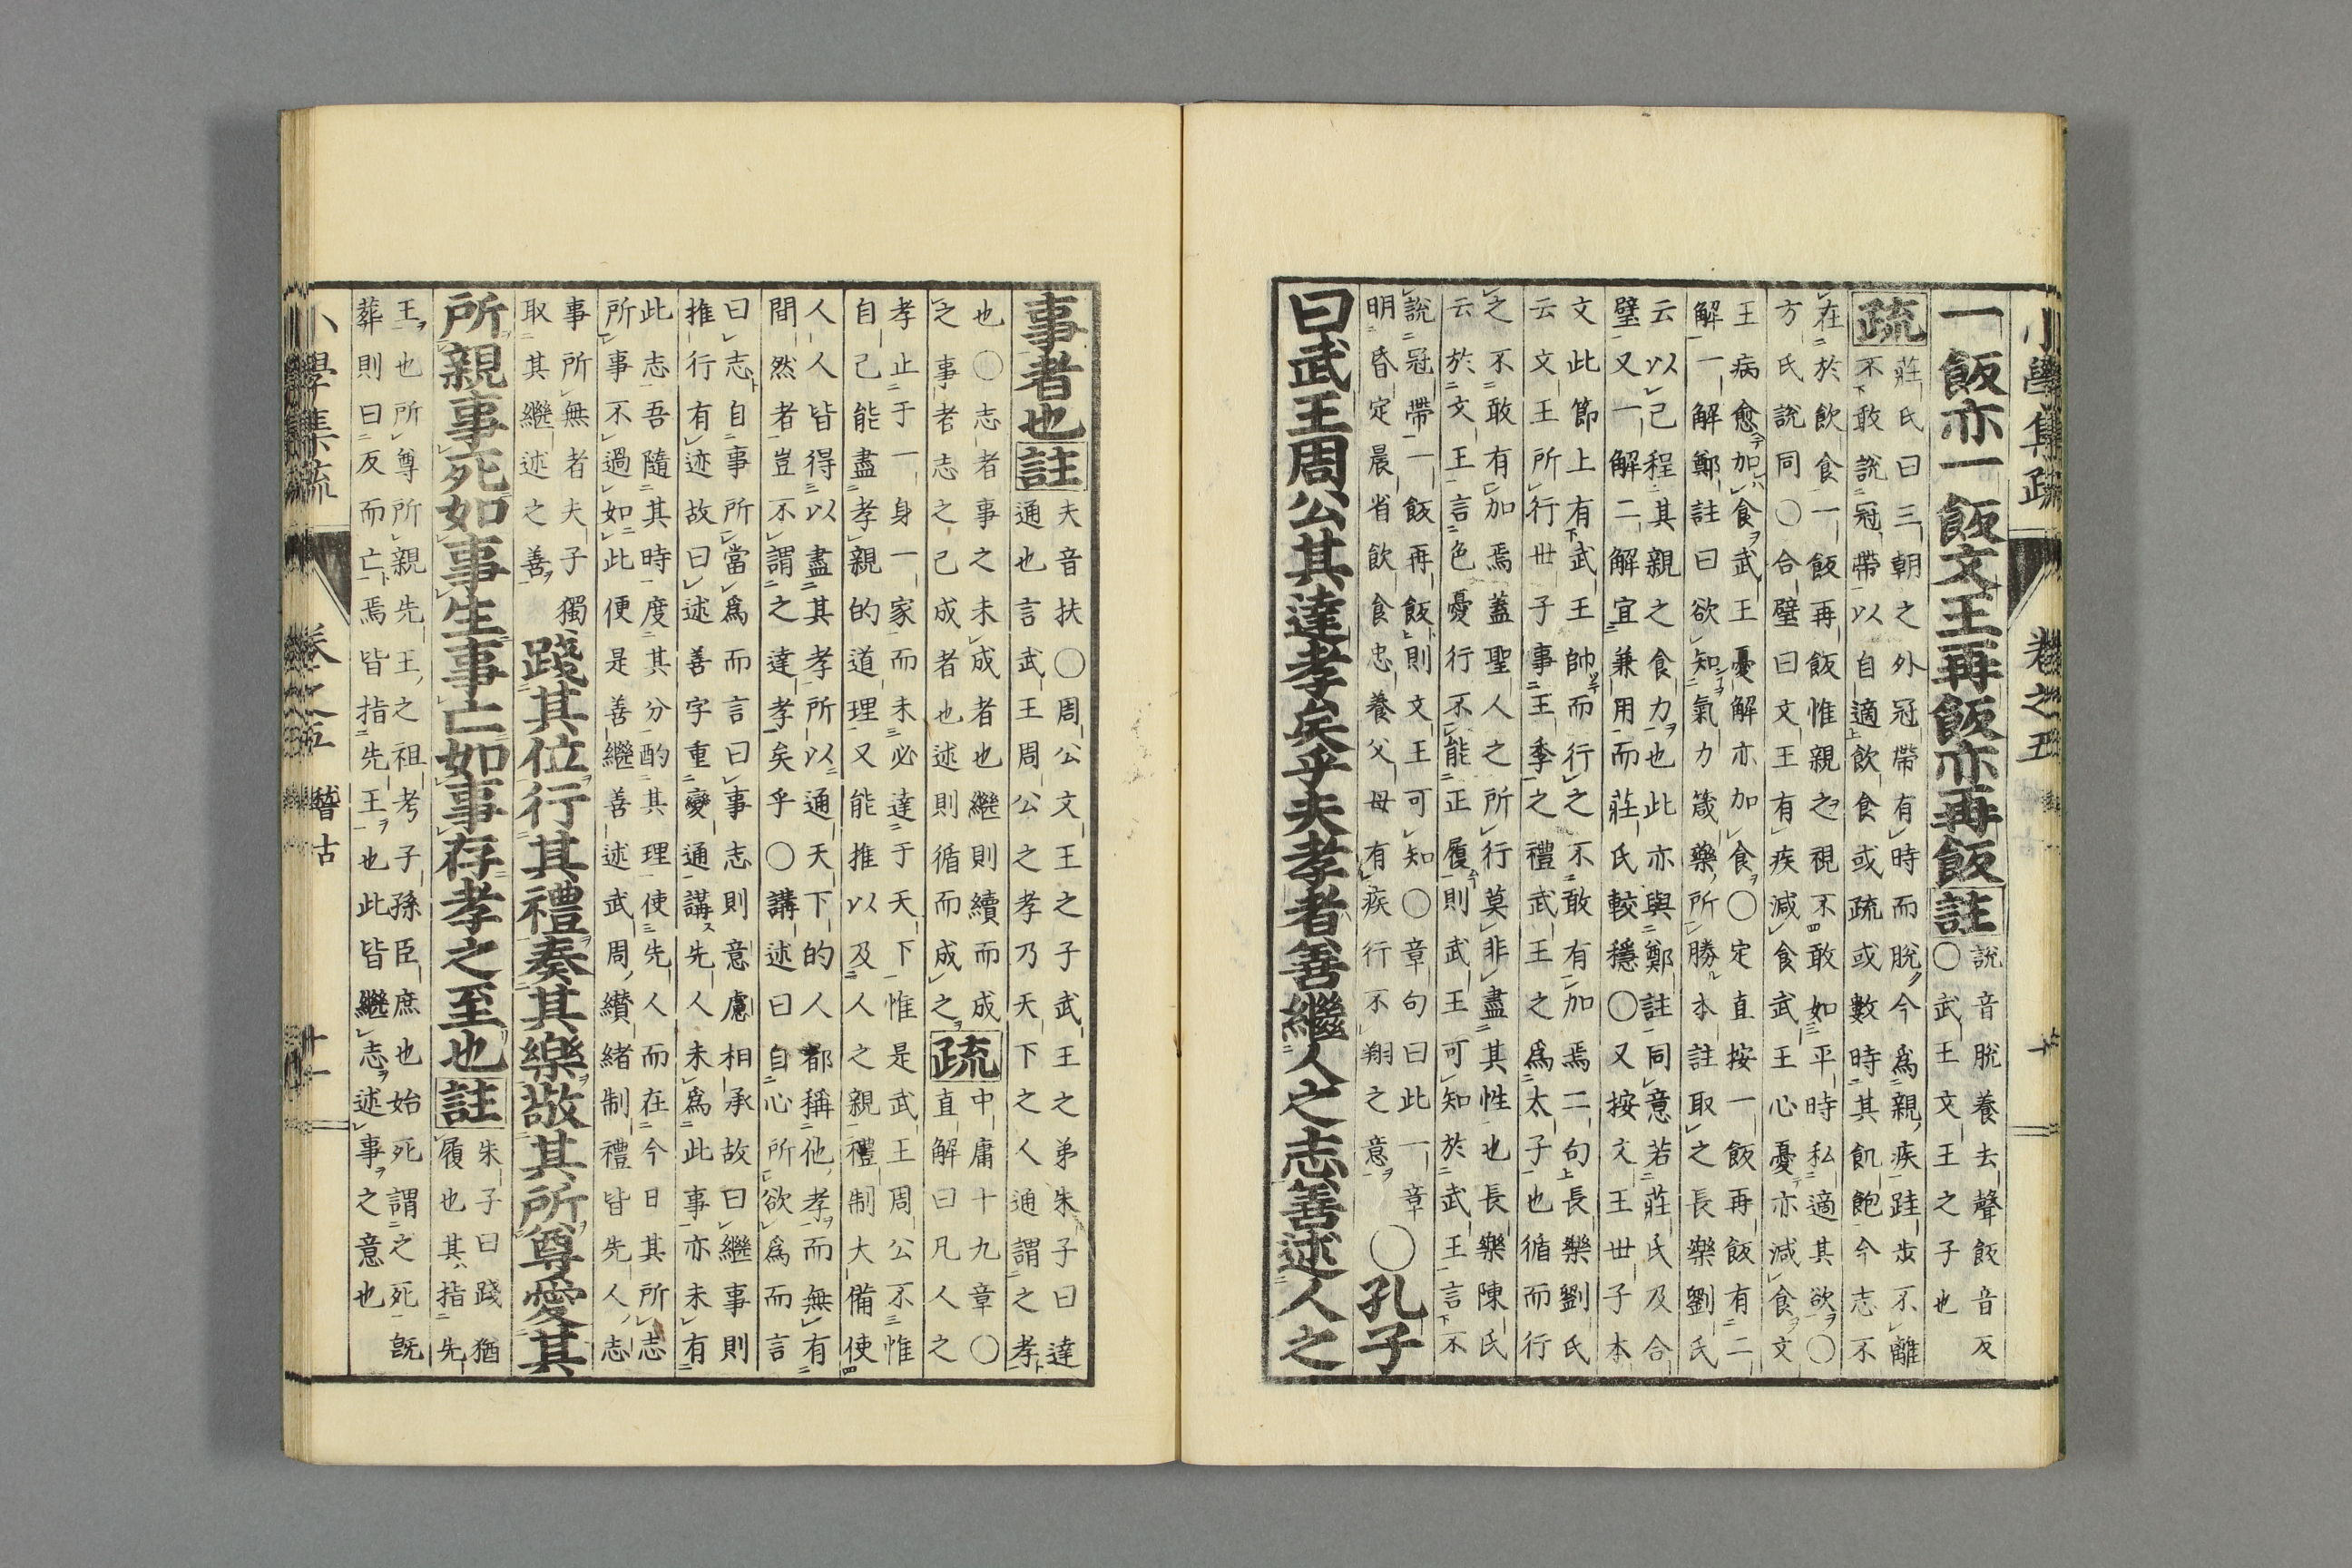 小學集疏　卷之五　十
一飯亦一飯文王再飯亦再飯註
說音脫養去聲飯音反
〇武王文王之子也
疏
莊氏曰三朝之外冠帶有時而脫今為親疾跬步不離
不敢說冠帶以自適飲食或疏或數時其飢飽今志不
在於飲食一飯再飯惟親之視不敢如平時私適其欲〇
方氏說同〇合璧曰文王有疾減食武王心憂亦減食文
王病愈加食武王憂解亦加食〇定直按一飯再飯有二
解一解鄭註曰欲知氣力箴藥所勝本註取之長樂劉氏
云以己程其親之食力也此亦與鄭註同意若莊氏及合
璧又一解二解宜兼用而莊氏較穩〇又按文王世子本
文此節上有武王帥而行之不敢有加焉二句長樂劉氏
云文王所行世子事王季之禮武王之為太子也循而行
之不敢有加焉蓋聖人之所行莫非盡其性也長樂陳氏
云於文王言色憂行不能正履則武王可知於武王言不
說冠帶一飯再飯則文王可知〇章句曰此一章
明昏定晨省飲食忠養父母有疾行不翔之意
〇孔子
曰武王周公其達孝矣乎夫孝者善繼人之志善述人之
事者也註
夫音扶〇周公文王之子武王之弟朱子曰達
通也言武王周公之孝乃天下之人通謂之孝
也〇志者事之未成者也繼則續而成
之事者志之已成者也述則循而成之
疏
中庸十九章〇
直解曰凡人之
孝止于一身一家而未必達于天下惟是武王周公不惟
自己能盡孝親的道理又能推以及人之親禮制大備使
人人皆得以盡其孝所以通天下的人都稱他孝而無有
間然者豈不謂之達孝矣乎〇講述曰自心所欲為而言
曰志自事所當為而言曰事志則意慮相承故曰繼事則
推行有迹故曰述善字重變通講先人未為此事亦未有
此志吾隨其時度其分酌其理使先人而在今日其所志
所事不過如此便是善繼善述武周纘緒制禮皆先人志
事所無者夫子獨
取其繼述之善
踐其位行其禮奏其樂敬其所尊愛其
所親事死如事生事亡如事存孝之至也註
朱子曰踐猶
履也其指先
王也所尊所親先王之祖考子孫臣庶也始死謂之死既
葬則曰反而亡焉皆指先王也此皆繼志述事之意也
小學集疏　卷之五　稽古　十一